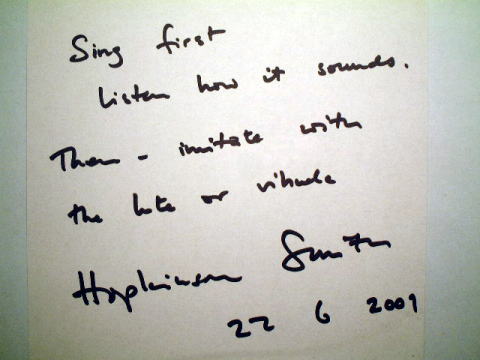 Sing first
Listen how it sounds.
Then - imitate with
the lute or vihuela
Hopkinson Smith
22 6 2009